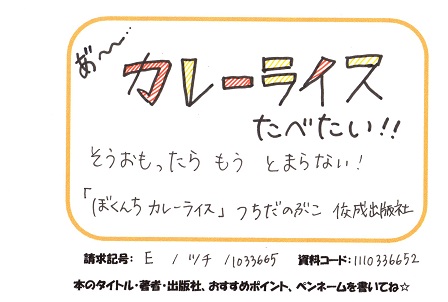 あ゛〜〜…
カレーライス
たべたい!!
そうおもったら もう とまらない!
「ぼくんち カレーライス」 つちだのぶこ 佼成出版社
請求記号: E / ツチ / 1033665 資料コード: 1110336652
本のタイトル・著者・出版社、おすすめポイント、ペンネームを書いてね☆